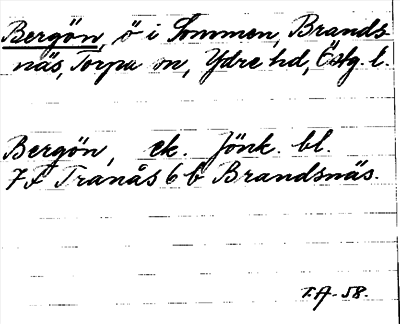 Bergön, ö i Sommen, Brands-
näs, Torpa sn, Ydre hd, Östg. l.
Bergön, ek. Jönk. bl.
7F Tranås 6 b Brandsnäs.
T.A. 58.